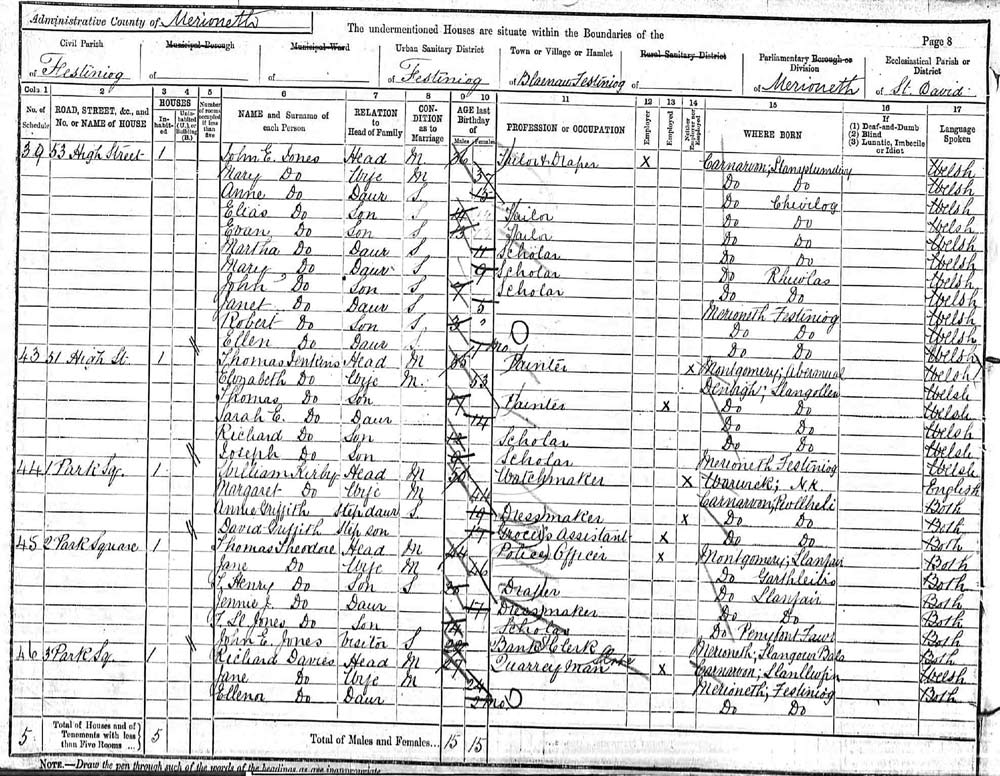 Administrative County of Merioneth
The undermentioned Houses are situate within the Boundaries of the
Page 8
Civil Parish
of Festiniog
Municipal Borough
of
Municipal Ward
of
Urban Sanitary District
of Festiniog
Town or Village or Hamlet
of Blaenau Festiniog
Rural Sanitary District
of
Parliamentary Borough or Division
of Merioneth
Ecclesiastical Parish or District
of St. David
Cols 1 2 3 4 5 6 7 8 9 10 11 12 13 14 15 16 17
No. of Schedule
ROAD, STREET, &c., and No. or NAME of HOUSE
HOUSES
In-habit-ed
Unin-habited (U.), or Building (B.)
Number of rooms occupied if less than five
NAME and Surname of each Person
RELATION to Head of Family
CON-DITION as to Marriage
AGE last Birthday of
Males Females
PROFESSION or OCCUPATION
Employer
Employed
Neither Employer nor Employed
WHERE BORN
If (1) Deaf-and-Dumb (2) Blind (3) Lunatic, Imbecile or Idiot
Language Spoken
39 53 High Street 1 John E. Jones Head M Tailor & Draper X Carnarvon; Welsh
Mary Do Wife M Do Do Welsh
Anne Do Daur S 15 Do Chwilog Welsh
Elias Do Son S Tailor Do Do Welsh
Evan Do Son S 13 Tailor Do Do Welsh
Martha Do Daur S 11 Scholar Do Do Welsh
Mary Do Daur S 9 Scholar Do Rhiwlas Welsh
John Do Son S 7 Scholar Do Do Welsh
Janet Do Daur S 5 Merioneth Festiniog Welsh
Robert Do Son S 3 Do Do Welsh
Ellen Do Daur S 7 mo Do Do Welsh
43 51 High St. 1 Thomas Jenkins Head M Painter X Montgomery; Welsh
Elizabeth Do Wife M. 53 Denbigh; Llangollen Welsh
Thomas Do Son Painter X Do Do Welsh
Sarah E. Do Daur 14 Do Do Welsh
Richard Do Son Scholar Do Do Welsh
Joseph Do Son Scholar Merioneth Festiniog Welsh
44 1 Park Sq. 1 William Kirby Head M Watchmaker X Warwick; N.K. English
Margaret Do Wife M 44 Carnarvon; Pwllheli Both
Annie Griffith Step daur S 19 Dressmaker X Do Do Both
David Griffith Step son 17 Grocer's Assistant X Do Do Both
45 2 Park Square 1 Thomas Theodore Head M 44 Police Officer X Montgomery; Llanfair Both
Jane Do Wife M 46 Do Both
T. Henry Do Son S 20 Draper Do Llanfair Both
Jennie J. Do Daur 17 Dressmaker Do Do Both
Do Son 14 Scholar Do Both
John E. Jones Visitor S 29 Bank Clerk Merioneth; Bala Both
46 3 Park Sq. 1 Richard Davies Head M 27 Quarryman X Carnarvon; Welsh
Jane Do Wife M Merioneth; Festiniog Both
Ellena Do Daur Do Do
5 Total of Houses and of Tenements with less than Five Rooms ... 5 Total of Males and Females... 15 15
NOTE.—Draw the pen through such of the words of the headings as are inappropriate.